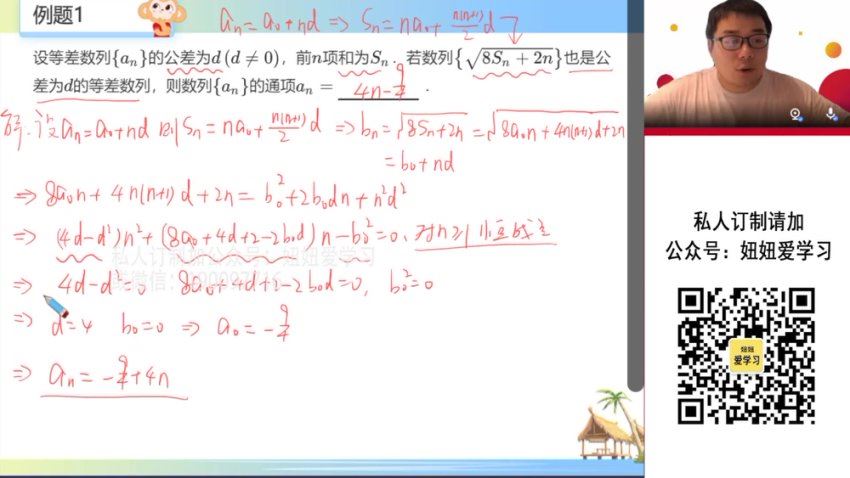 例题1
aₙ=a₀+nd ⇒ Sₙ=na₀+n(n+1)/2 d
设等差数列{aₙ}的公差为d(d≠0)，前n项和为Sₙ．若数列{√8Sₙ+2n}也是公
差为d的等差数列，则数列{aₙ}的通项aₙ= 4n-9/4 ．
解.设aₙ=a₀+nd 则Sₙ=na₀+n(n+1)/2 d ⇒ bₙ=√8Sₙ+2n=√8a₀n+4n(n+1)d+2n
=b₀+nd
⇒ 8a₀n+4n(n+1)d+2n=b₀²+2b₀dn+n²d²
⇒ (4d-d²)n²+(8a₀+4d+2-2b₀d)n-b₀²=0, 对n≥1恒成立
私人订制加公众号：妞妞爱学习
⇒ 4d-d²=0 8a₀+4d+2-2b₀d=0, b₀²=0
⇒ d=4 b₀=0 ⇒ a₀=-9/4
⇒ aₙ=-9/4+4n
私人订制请加
公众号：妞妞爱学习
妞妞
爱学习